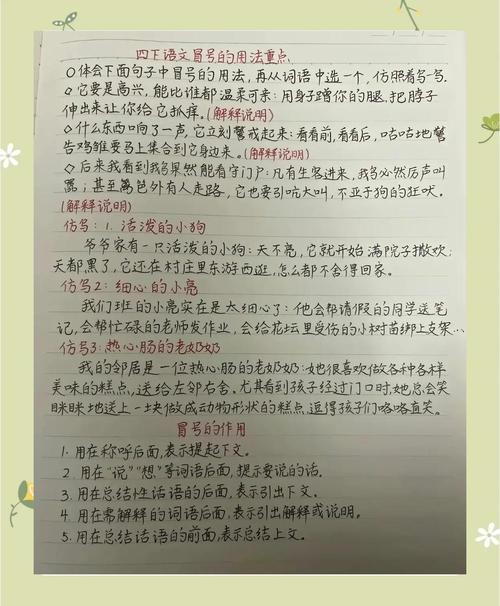 四下语文冒号的用法重点
○体会下面句子中冒号的用法,再从词语中选一个,仿照着写一写。
○它要是高兴,能比谁都温柔可亲:用身子蹭你的腿,把脖子
伸出来让你给它抓痒。(解释说明)
○什么东西响了一声,它立刻警戒起来:看看前,看看后,咕咕地警
告鸡雏要马上集合到它身边来。(解释说明)
○后来我看到我的鹅果然能看守门户:凡有生客进来,鹅必然厉声叫
嚣;甚至篱笆外有人走路,它也要引吭大叫,不亚于狗的狂吠。
(解释说明)
仿写:1.活泼的小狗
爷爷家有一只活泼的小狗:天不亮,它就开始满院子撒欢;
天都黑了,它还在村庄里东游西逛,怎么都不舍得回家。
仿写2:细心的小亮
我们班的小亮实在是太细心了:他会帮请假的同学送笔
记,会帮忙碌的老师发作业,会给花坛里受伤的小树苗绑上支架…
仿写3:热心肠的老奶奶
我的邻居是一位热心肠的老奶奶:她很喜欢做各种各样
美味的糕点,送给左邻右舍。尤其看到孩子经过门口时,她总会笑
眯眯地送上一块做成动物形状的糕点,逗得孩子们咯咯直笑。
冒号的作用
1.用在称呼后面,表示提起下文。
2.用在“说”“想”等词语后面,提示要说的话。
3.用在总结性话语的后面,表示引出下文。
4.用在需解释的词语后面,表示引出解释或说明。
5.用在总结话语的前面,表示总结上文。